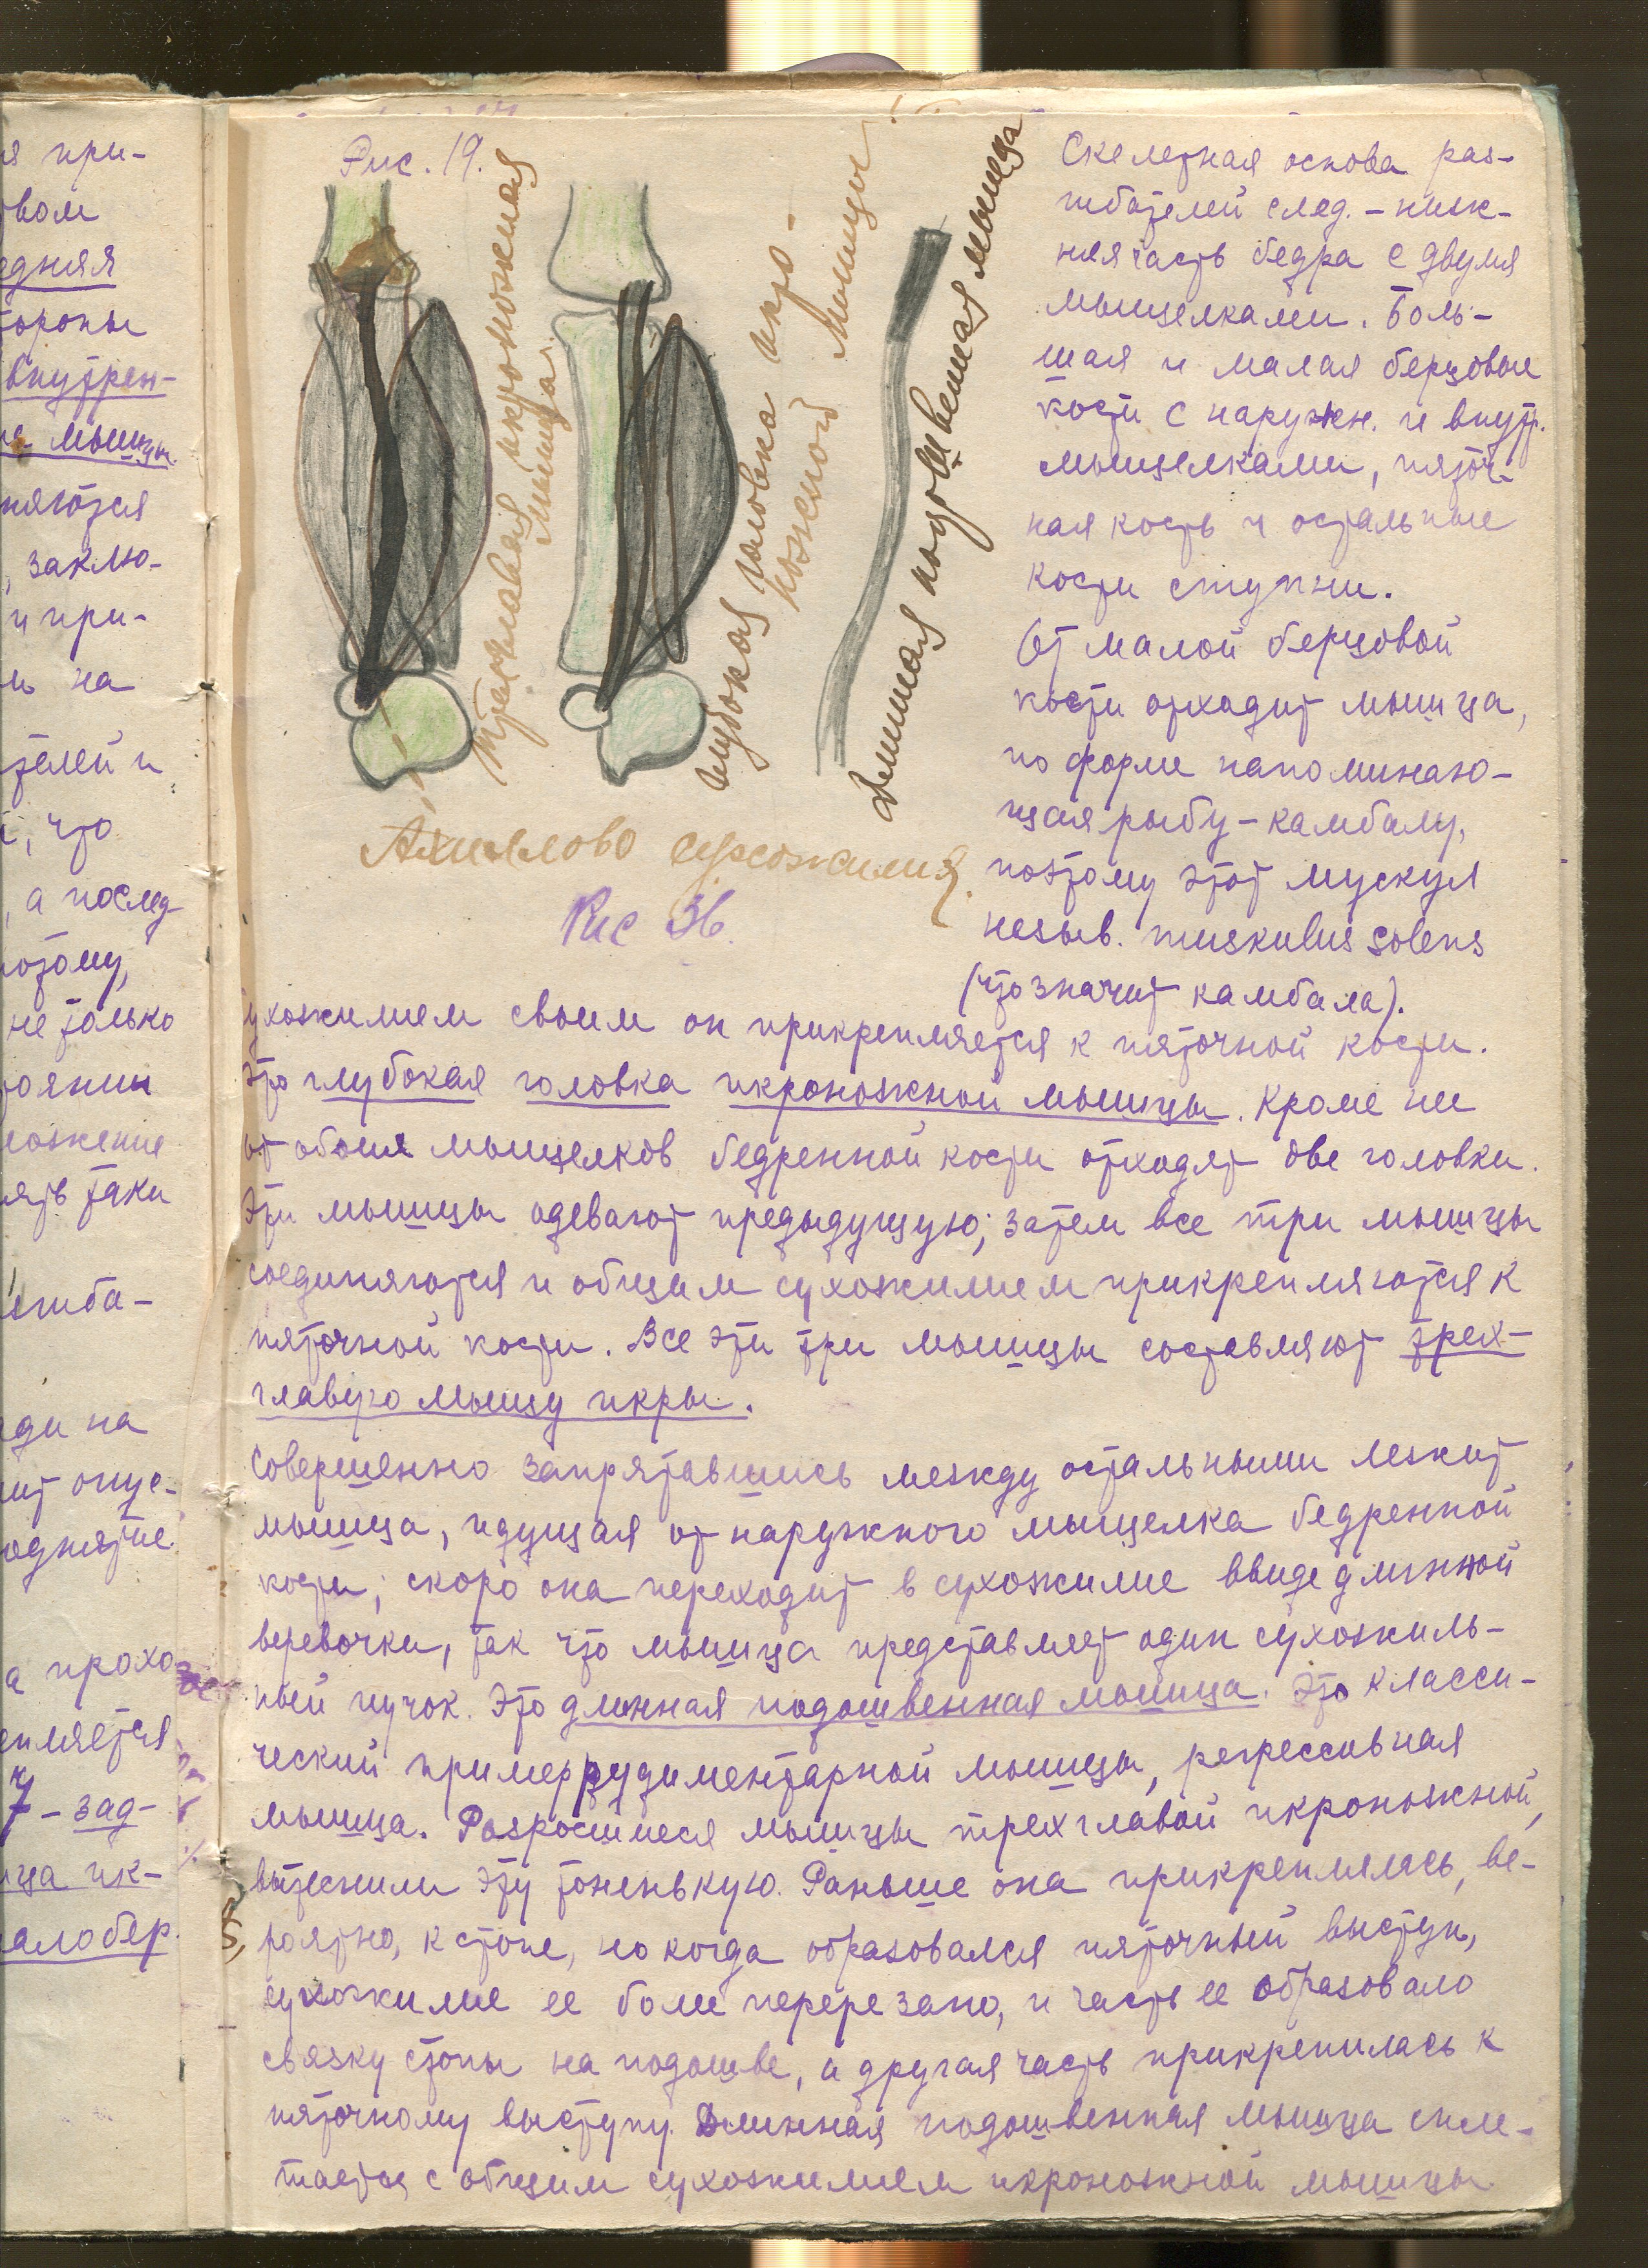 я при-
вом
едняя
тороны
внутрен-
мышцы
няются
, заклю-
и при-
ь на
телей и
, что
, а послед-
потому,
не только
ложение
ять таки
гиба-
ди на
ит опус-
однятие
а прохо
епляется
7 - зад-
ца ик-
алобер.
Рис. 19.
трехглавая икроножная
мышца.
глубокая головка икро-
ножной мышцы
длинная подошвенная мышца
Ахиллово сухожилия.
Рис 36.
Скелетная основа раз-
гибателей след. - ниж-
няя часть бедра с двумя
мыщелками. Боль-
шая и малая берцовые
кости с наружн. и внутр.
мыщелками, пяточ-
ная кость и остальные
кости ступни.
От малой берцовой
кости отходит мышца,
по форме напоминаю-
щая рыбу - камбалу,
поэтому этот мускул
назыв. muskulus solens
(что значит камбала).
сухожилием своим он прикрепляется к пяточной кости.
Это глубокая головка икроножной мышцы. Кроме нее
от обоих мыщелков бедренной кости отходят две головки.
Эти мышцы одевают предыдущую; затем все три мышцы
соединяются и общим сухожилием прикрепляются к
пяточной кости. Все эти три мышцы составляют трех-
главую мышцу икры.
Совершенно запрятавшись между остальными лежит
мышца, идущая от наружного мыщелка бедренной
кости; скоро она переходит в сухожилие ввиде длинной
веревочки, так что мышца представляет один сухожиль-
ный пучок. Это длинная подошвенная мышца. Это класси-
ческий пример рудиментарной мышцы, регрессивная
мышца. Разросшиеся мышцы трехглавой икроножной,
вытеснили эту тоненькую. Раньше она прикреплялась, ве-
роятно, к стопе, но когда образовался пяточный выступ,
сухожилие ее было перерезано, и часть ее образовало
связку стопы на подошве, а другая часть прикрепилась к
пяточному выступу. Длинная подошвенная мышца спле-
тается с общим сухожилием икроножной мышцы